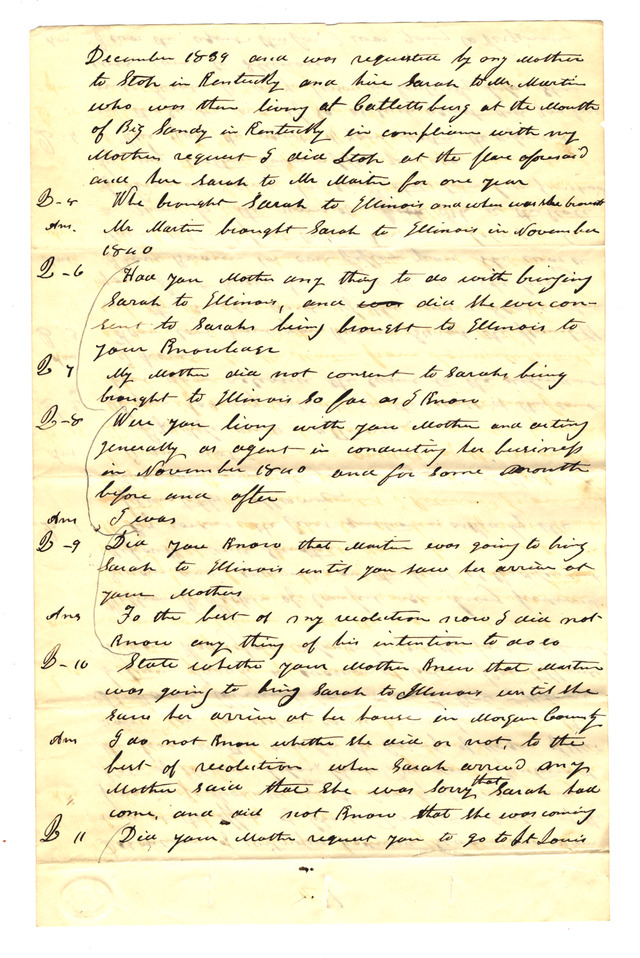 December 1839 and was requested by my Mother
to Stop in Kentucky and hire Sarah to Mr. Martin
who was then living at Catlettsburg at the Mouth
of Big Sandy in Kentucky in compliance with my
Mothers request I did Stop at the place aforesaid
and hire Sarah to Mr Martin for one year
Who brought Sarah to Illinois and when was she brought
Ans. Mr Martin brought Sarah to Illinois in November
1840
Q-6 Had your Mother any thing to do with bringing
Sarah to Illinois, and did she ever con-
sent to Sarahs being brought to Illinois to
your Knowledge
Q 7 My Mother did not consent to Sarahs being
brought to Illinois so far as I Know
Q-8 Were you living with your Mother and acting
generally as agent in conducting her business
in November 1840 and for Some month
before and after
Ans I was
Q-9 Did you Know that Martin was going to bring
Sarah to Illinois until you saw her arrive at
your Mothers
Ans To the best of my recolection now I did not
Know any thing of his intention to do so
Q-10 State whether your Mother Knew that Martin
was going to bring Sarah to Illinois until she
saw her arrive at her house in Morgan County
Ans I do not Know whether she did or not, to the
best of recolection when Sarah arrived my
Mother said that she was sorry that Sarah had
come, and did not Know that she was coming
Q 11 Did your Mother request you to go to St Louis